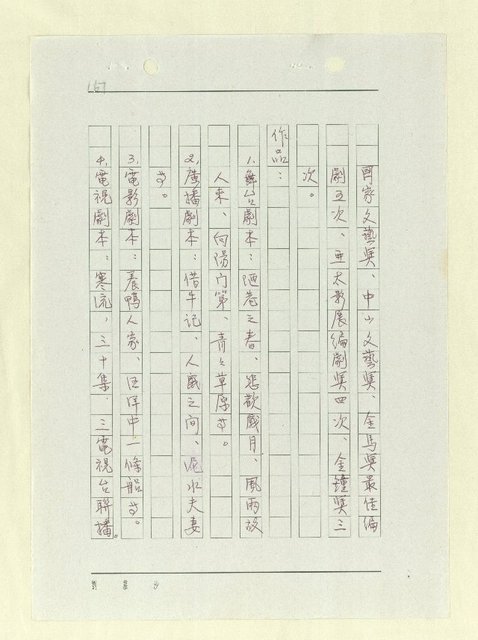 167
國家文藝獎、中山文藝獎、金馬獎最佳編
劇五次、亞太影展編劇獎四次、金鐘獎三
次。
作品：
1.舞台劇本：陋巷之春、悲歡歲月、風雨故
人來、向陽門第、青々草原等。
2.廣播劇本：借牛記、人慾之間、泥水夫妻
等。
3.電影劇本：養鴨人家、汪洋中一條船等。
4.電視劇本：寒流，三十集，三電視台聯播。